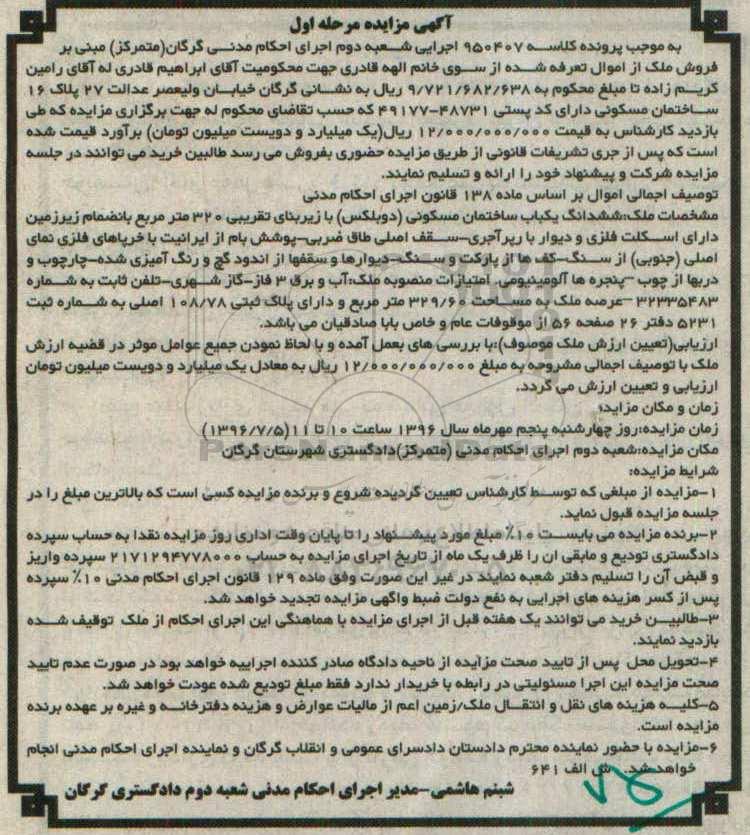 آگهی مزایده مرحله اول
به موجب پرونده کلاسه ۹۵۰۴۰۷ اجرایی شعبه دوم اجرای احکام مدنی گرگان(متمرکز) مبنی بر
فروش ملک از اموال تعرفه شده از سوی خانم الهه قادری جهت محکومیت آقای ابراهیم قادری له آقای رامین
کریم زاده تا مبلغ محکوم به ۹/۷۲۱/۶۸۲/۶۳۸ ریال به نشانی گرگان خیابان ولیعصر عدالت ۲۷ پلاک ۱۶
ساختمان مسکونی دارای کد پستی ۴۸۷۳۱-۴۹۱۷۷ که حسب تقاضای محکوم له جهت برگزاری مزایده که طی
بازدید کارشناس به قیمت ۱۲/۰۰۰/۰۰۰/۰۰۰ ریال(یک میلیارد و دویست میلیون تومان) برآورد قیمت شده
است که پس از جری تشریفات قانونی از طریق مزایده حضوری بفروش می رسد طالبین خرید می توانند در جلسه
مزایده شرکت و پیشنهاد خود را ارائه و تسلیم نمایند.
توصیف اجمالی اموال بر اساس ماده ۱۳۸ قانون اجرای احکام مدنی
مشخصات ملک:ششدانگ یکباب ساختمان مسکونی (دوبلکس) با زیربنای تقریبی ۳۲۰ متر مربع بانضمام زیرزمین
دارای اسکلت فلزی و دیوار با رپرآجری-سقف اصلی طاق ضربی-پوشش بام از ایرانیت با خرپاهای فلزی نمای
اصلی (جنوبی) از سنگ-کف ها از پارکت و سنگ-دیوارها و سقفها از اندود گچ و رنگ آمیزی شده-چارچوب و
دربها از چوب -پنجره ها آلومینیومی. امتیازات منصوبه ملک:آب و برق ۳ فاز-گاز شهری-تلفن ثابت به شماره
۳۲۳۳۵۴۸۳ -عرصه ملک به مساحت ۳۲۹/۶۰ متر مربع و دارای پلاک ثبتی ۱۰۸/۷۸ اصلی به شماره ثبت
۵۲۳۱ دفتر ۲۶ صفحه ۵۶ از موقوفات عام و خاص بابا صادقیان می باشد.
ارزیابی(تعیین ارزش ملک موصوف):با بررسی های بعمل آمده و با لحاظ نمودن جمیع عوامل موثر در قضیه ارزش
ملک با توصیف اجمالی مشروحه به مبلغ ۱۲/۰۰۰/۰۰۰/۰۰۰ ریال به معادل یک میلیارد و دویست میلیون تومان
ارزیابی و تعیین ارزش می گردد.
زمان و مکان مزاید:
زمان مزایده:روز چهارشنبه پنجم مهرماه سال ۱۳۹۶ ساعت ۱۰ تا ۱۱(۱۳۹۶/۷/۵)
مکان مزایده:شعبه دوم اجرای احکام مدنی (متمرکز)دادگستری شهرستان گرگان
شرایط مزایده:
۱-مزایده از مبلغی که توسط کارشناس تعیین گردیده شروع و برنده مزایده کسی است که بالاترین مبلغ را در
جلسه مزایده قبول نماید.
۲-برنده مزایده می بایست ۱۰٪ مبلغ مورد پیشنهاد را تا پایان وقت اداری روز مزایده نقدا به حساب سپرده
دادگستری تودیع و مابقی ان را ظرف یک ماه از تاریخ اجرای مزایده به حساب ۲۱۷۱۲۹۴۷۷۸۰۰۰ سپرده واریز
و قبض آن را تسلیم دفتر شعبه نمایند در غیر این صورت وفق ماده ۱۲۹ قانون اجرای احکام مدنی ۱۰٪ سپرده
پس از کسر هزینه های اجرایی به نفع دولت ضبط واگهی مزایده تجدید خواهد شد.
۳-طالبین خرید می توانند یک هفته قبل از اجرای مزایده با هماهنگی این اجرای احکام از ملک توقیف شده
بازدید نمایند.
۴-تحویل محل پس از تایید صحت مزایده از ناحیه دادگاه صادر کننده اجراییه خواهد بود در صورت عدم تایید
صحت مزایده این اجرا مسئولیتی در رابطه با خریدار ندارد فقط مبلغ تودیع شده عودت خواهد شد.
۵-کلیه هزینه های نقل و انتقال ملک/زمین اعم از مالیات عوارض و هزینه دفترخانه و غیره بر عهده برنده
مزایده است.
۶-مزایده با حضور نماینده محترم دادستان دادسرای عمومی و انقلاب گرگان و نماینده اجرای احکام مدنی انجام
خواهد شد. ش الف ۶۴۱
شبنم هاشمی-مدیر اجرای احکام مدنی شعبه دوم دادگستری گرگان